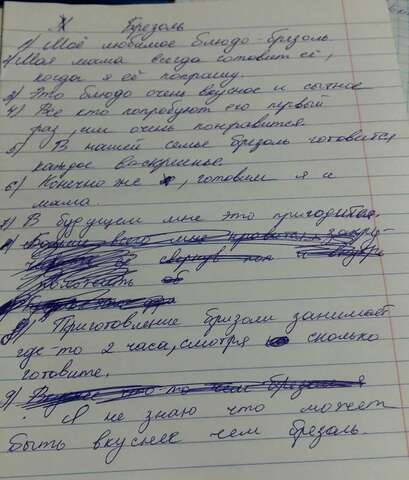 Брезоль
1) Моё любимое блюдо-брезоль.
2) Моя мама всегда готовит её,
когда я её попрашу.
3) Это блюдо очень вкусное и сытное
4) Все кто попробуют его первый
раз, им очень понравится.
5) В нашей семье брезоль готовится
каждое воскриснье.
6) Конечно же, готовим я и
мама.
7) В будущем мне это пригодится.
8) Приготовление бризоли занимает
где-то 2 часа, смотря сколько
готовите.
9)
Я не знаю что может
быть вкуснее чем брезоль.